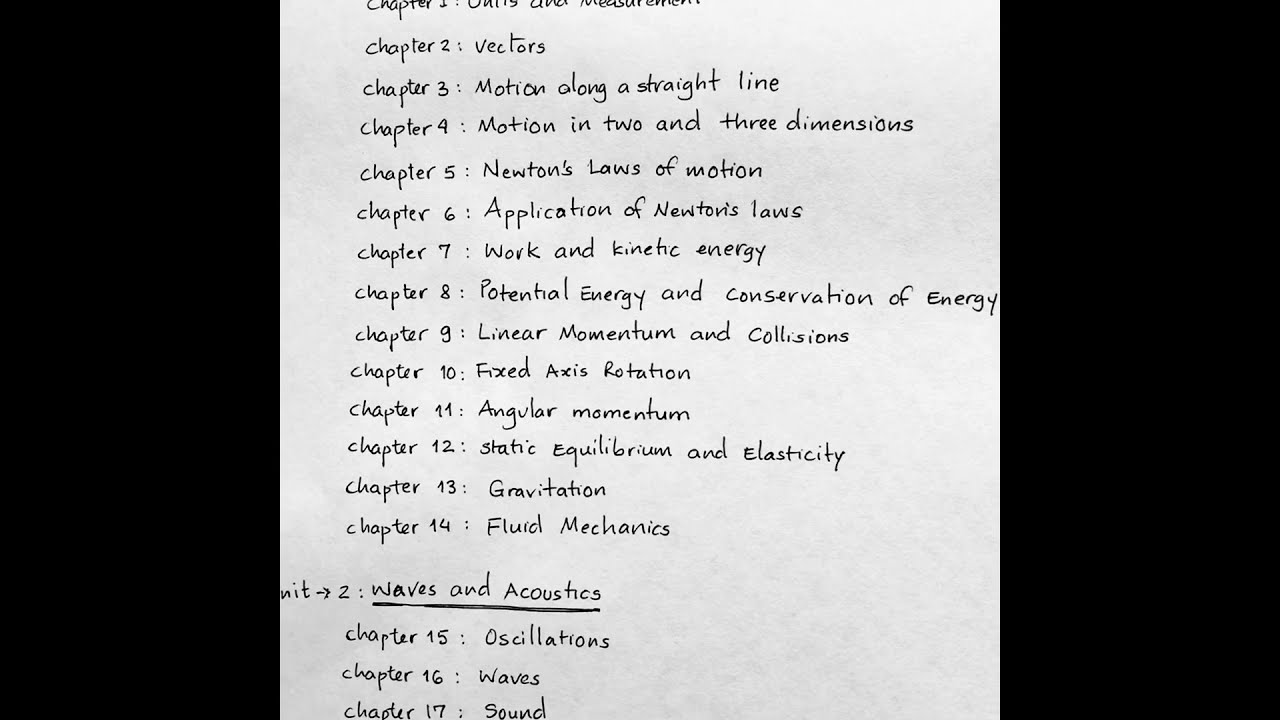 Chapter 1 : Units and Measurement
chapter 2 : vectors
chapter 3 : Motion along a straight line
chapter 4 : Motion in two and three dimensions
chapter 5 : Newton's Laws of motion
chapter 6 : Application of Newton's laws
chapter 7 : Work and kinetic energy
chapter 8 : Potential Energy and conservation of Energy
chapter 9 : Linear Momentum and Collisions
chapter 10 : Fixed Axis Rotation
chapter 11 : Angular momentum
chapter 12 : static Equilibrium and Elasticity
chapter 13 : Gravitation
chapter 14 : Fluid Mechanics
nit → 2 : Waves and Acoustics
chapter 15 : Oscillations
chapter 16 : Waves
chapter 17 : Sound